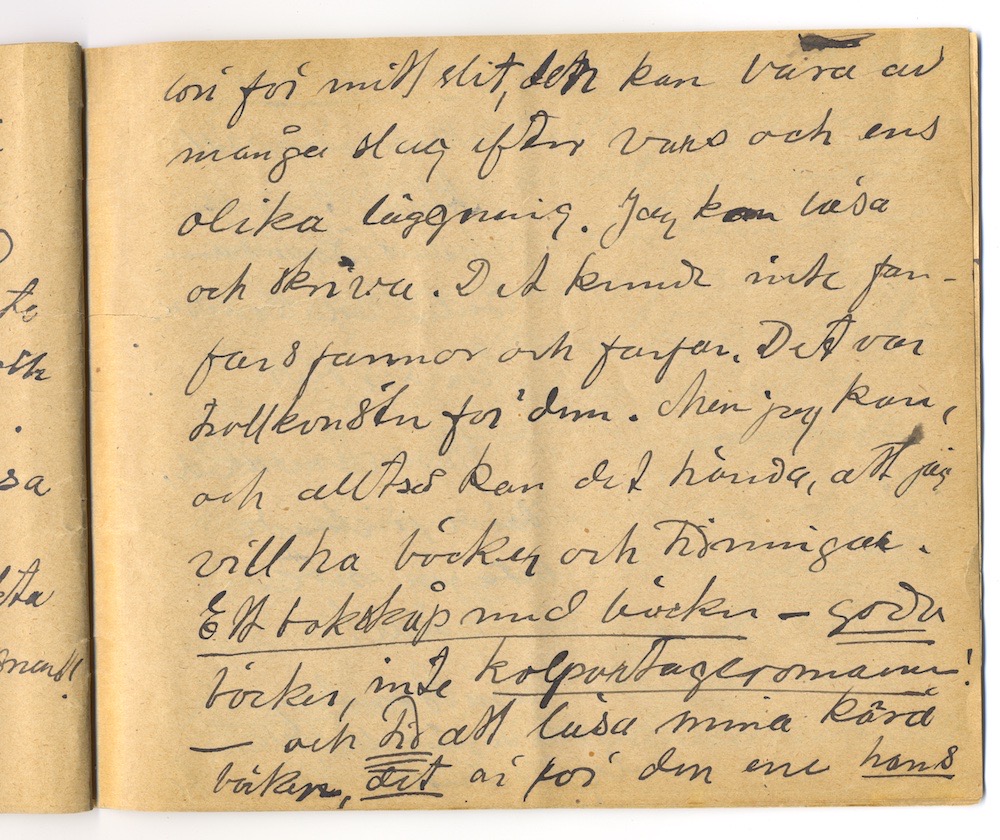 lön för mitt slit, den kan vara av
många slag efter vars och ens
olika läggning. Jag kan läsa
och skriva. Det kunde inte far-
fars farmor och farfar. Det var
trollkonster för dem. Men jag kan,
och alltså kan det hända, att jag
vill ha böcker och tidningar.
Ett bokskåp med böcker – goda
böcker, inte kolportageromaner!
— och tid att läsa mina kära
böcker, det är för den ene hans